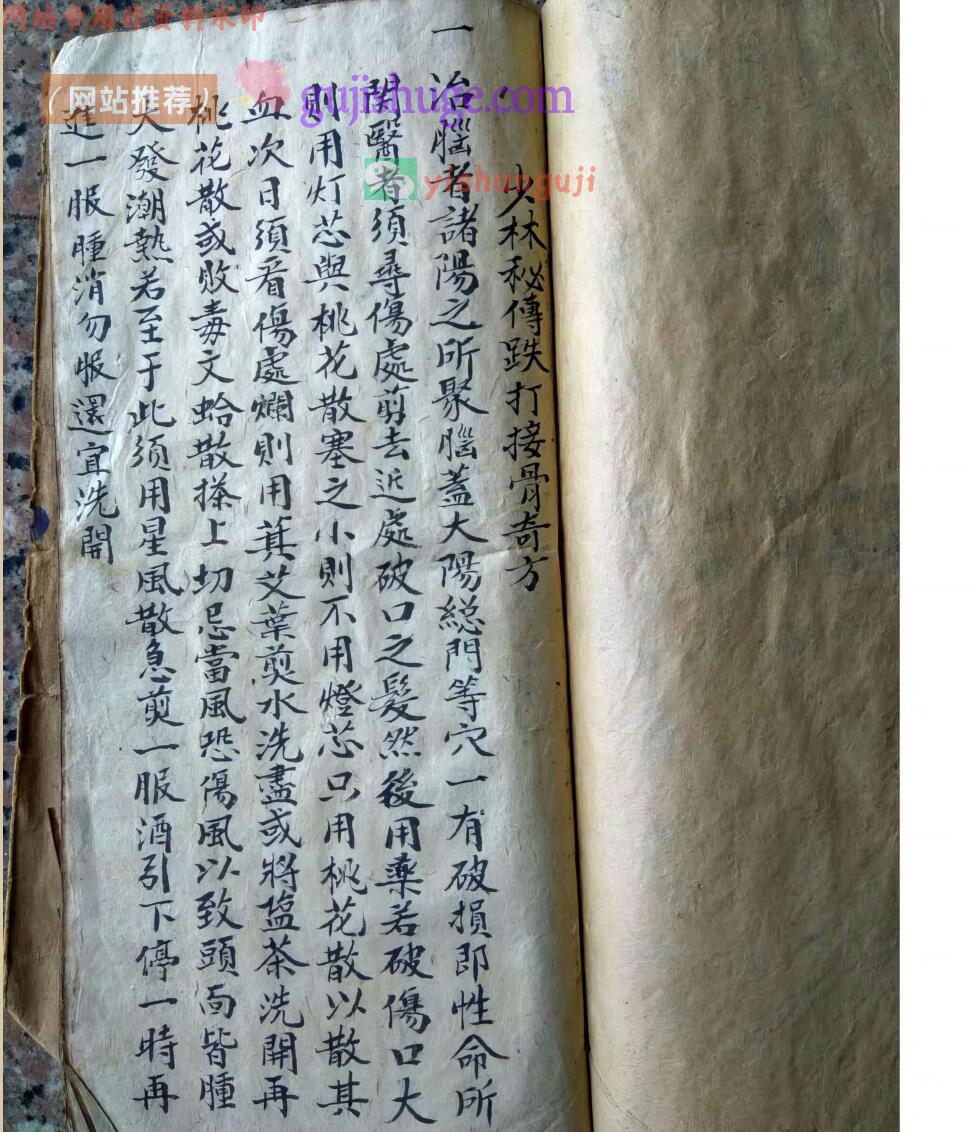 网站专用非资料水印
（网站推荐）
gujishuge.com
yishanguji
少林秘傳跌打接骨奇方
一治腦者諸陽之所聚腦蓋大陽総門等穴一有破損即性命所
関醫者須尋傷處剪去近處破口之髮然後用藥若破傷口大
則用灯芯與桃花散塞之小則不用燈芯只用桃花散以散其
血次日須看傷處爛則用萁艾葉煎水洗盡或將盐茶洗開再
桃花散或败毒文蛤散搽上切忌當風恐傷風以致頭面皆腫
大發潮熱若至于此须用星風散急煎一服酒引下停一時再
進一服腫消勿服還宜洗開